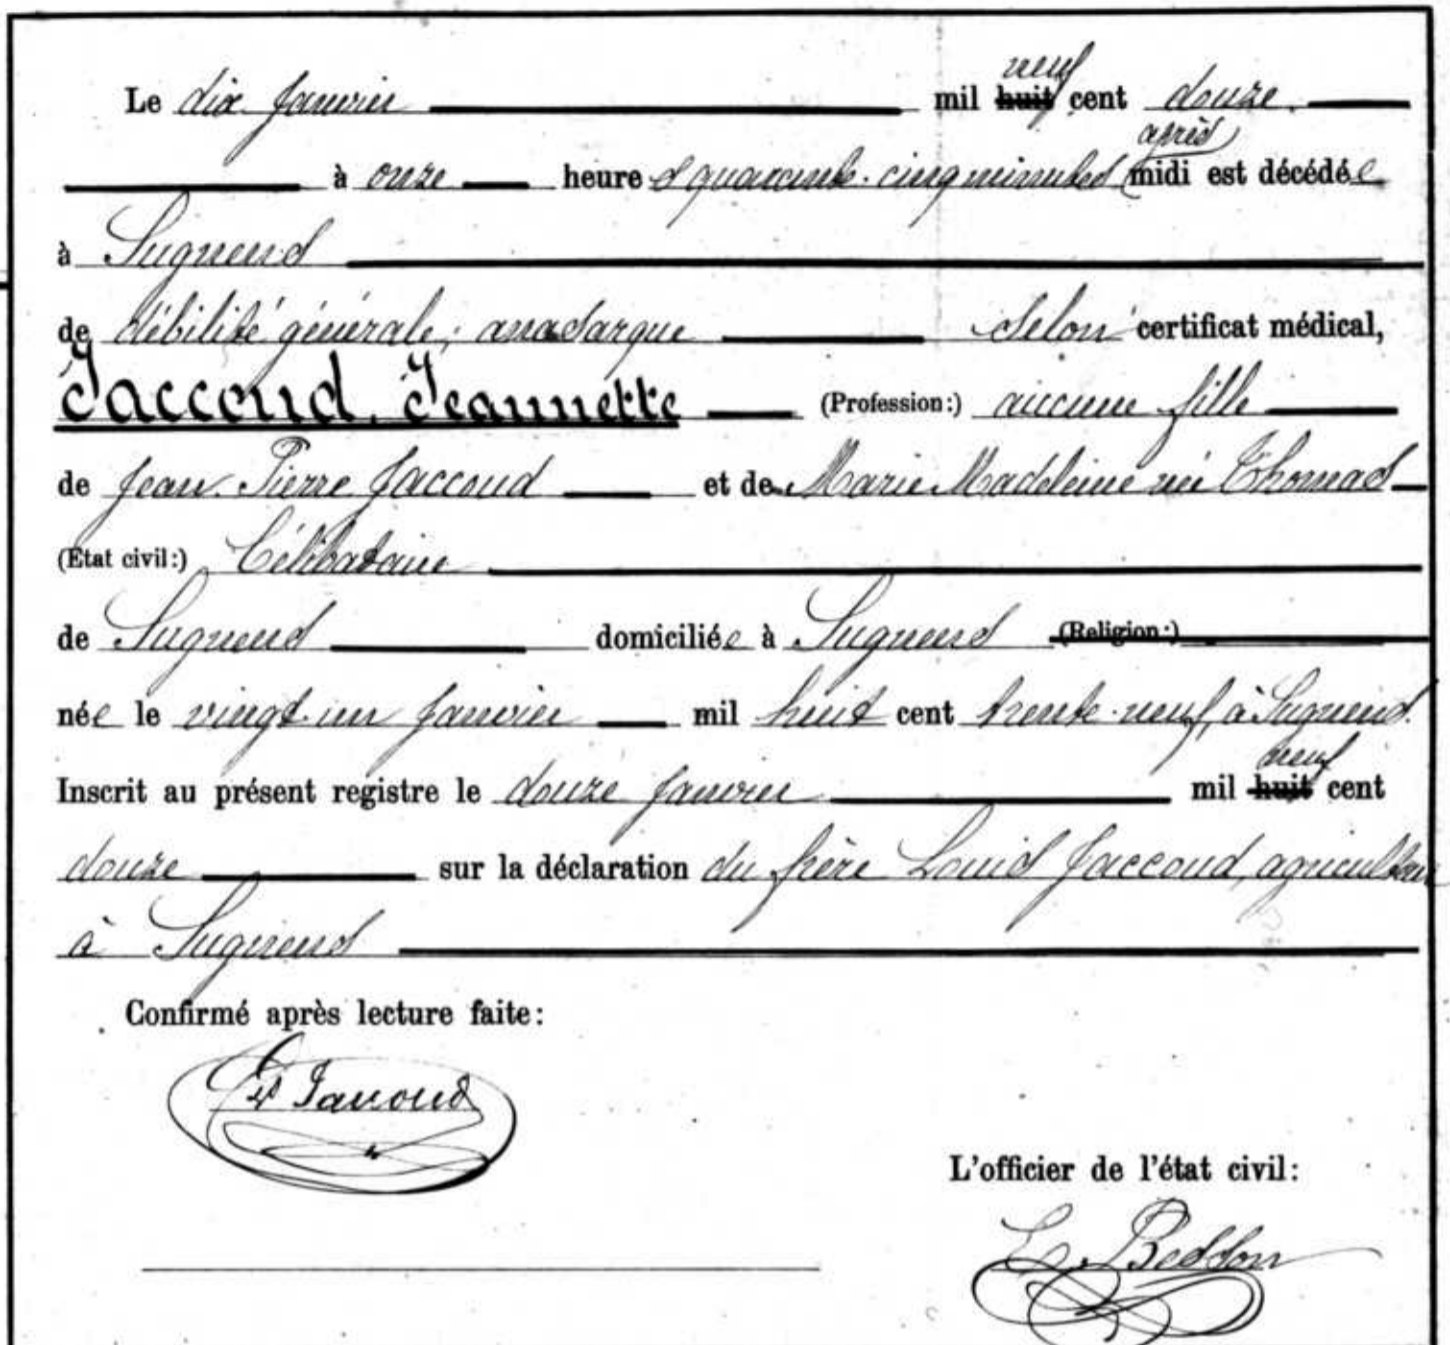 Le dix Janvier mil huit neuf cent douze.
à onze heure & quarante-cinq minutes après midi est décédée
à Sugnens
de débilité générale; anasarque selon certificat médical,
Jaccoud, Jeannette (Profession:) aucune fille
de Jean-Pierre Jaccoud et de Marie Madeleine née Thomas
(Etat civil:) Célibataire
de Sugnens domiciliée à Sugnens (Religion:)
née le vingt-un Janvier mil huit cent trente-neuf, à Sugnens.
Inscrit au présent registre le douze Janvier mil huit neuf cent
douze sur la déclaration du frère Louis Jaccoud, agriculteur
à Sugnens
Confirmé après lecture faite:
Jaccoud
L'officier de l'état civil:
Besson